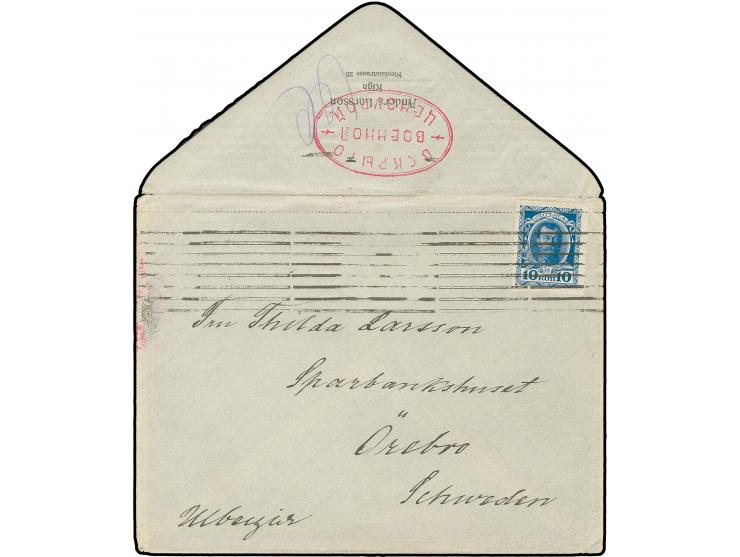 Anders Larsson
Riga
Nicolaistrasse 28
ВСКРЫТО
ВОЕННОЙ
ЦЕНЗУРОЙ
10 КОП 10
Fru Thilda Larsson
Sparbankshuset
Örebro
Schweden